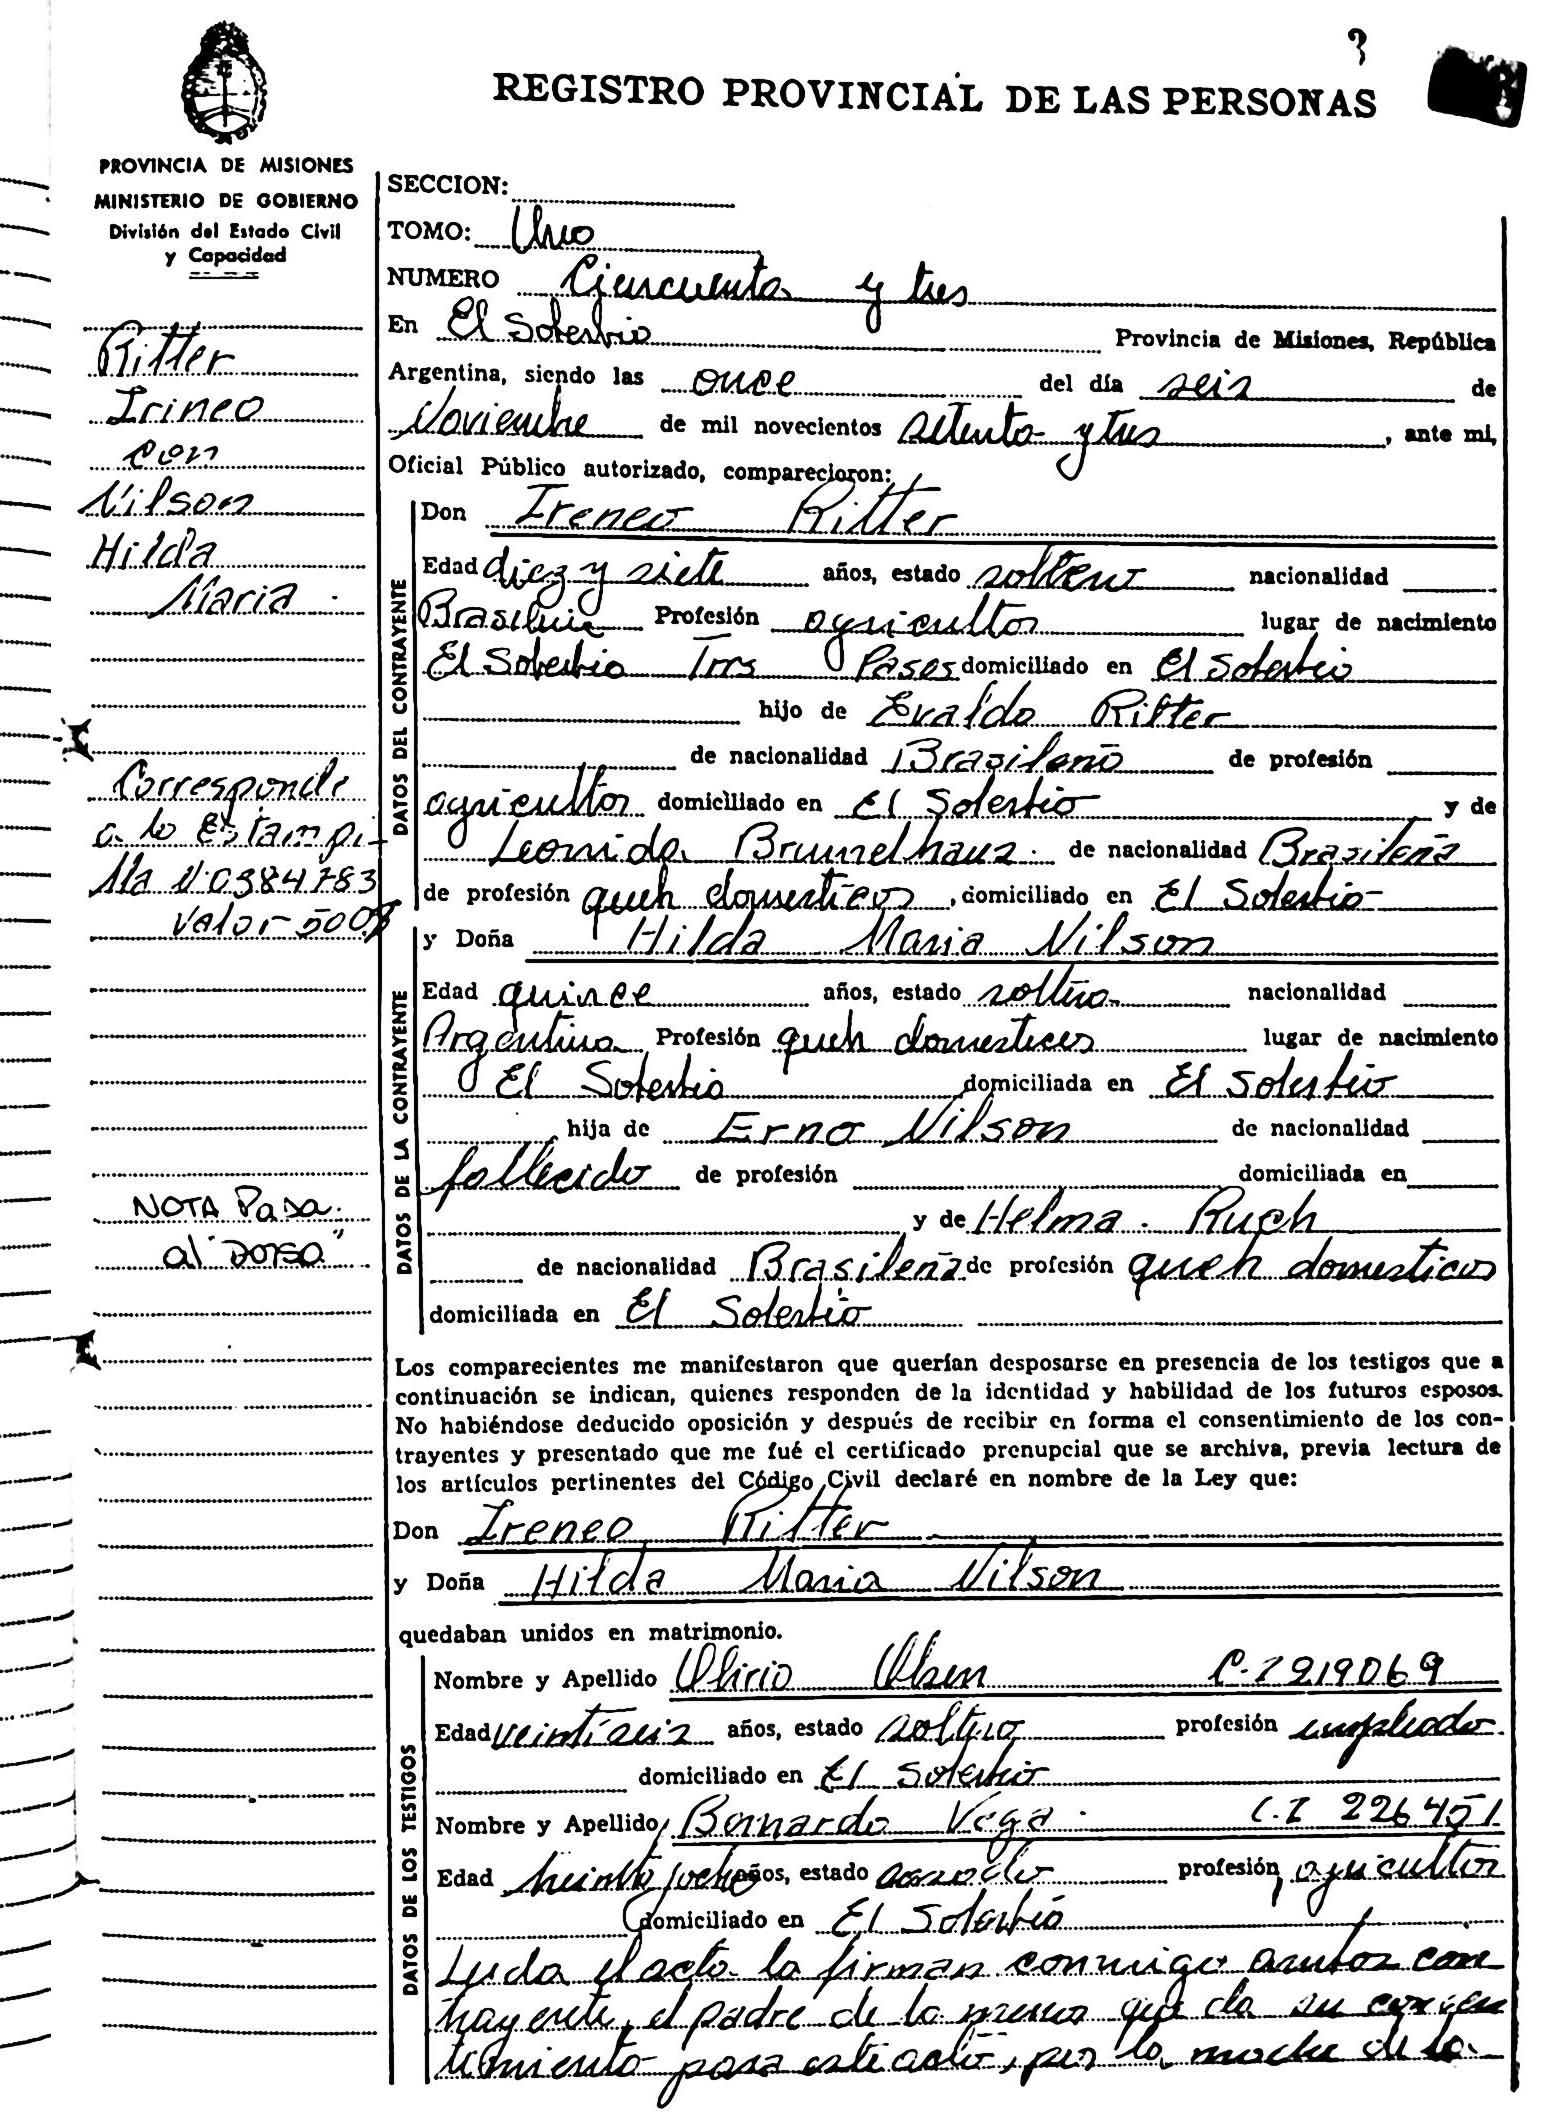 REGISTRO PROVINCIAL DE LAS PERSONAS
PROVINCIA DE MISIONES
MINISTERIO DE GOBIERNO
División del Estado Civil
y Capacidad
Ritter
Irineo
con
Nilson
Hilda
Maria
Corresponde
a la Estampi-
lla N 0384783
valor 500$
NOTA Pasa
al "Dorso"
SECCION:
TOMO: Uno
NUMERO Cincuenta y tres
En El Soberbio Provincia de Misiones, República
Argentina, siendo las once del día seis de
Noviembre de mil novecientos setenta y tres, ante mi,
Oficial Público autorizado, comparecieron:
DATOS DEL CONTRAYENTE
Don Ireneo Ritter
Edad diez y siete años, estado soltero nacionalidad
Profesión agricultor lugar de nacimiento
El Soberbio Pasos domiciliado en El Soberbio
hijo de Evaldo Ritter
de nacionalidad Brasileño de profesión
agricultor domiciliado en El Soberbio y de
Leonida de nacionalidad Brasileña
de profesión queh domesticos, domiciliado en El Soberbio
DATOS DE LA CONTRAYENTE
y Doña Hilda Maria Nilson
Edad quince años, estado soltera nacionalidad
Argentina Profesión queh domesticos lugar de nacimiento
El Soberbio domiciliada en El Soberbio
hija de Erno Nilson de nacionalidad
fallecido de profesión domiciliada en
y de Helma Ruch
de nacionalidad Brasileña de profesión queh domesticos
domiciliada en El Soberbio
Los comparecientes me manifestaron que querían desposarse en presencia de los testigos que a
continuación se indican, quienes responden de la identidad y habilidad de los futuros esposos.
No habiéndose deducido oposición y después de recibir en forma el consentimiento de los con-
trayentes y presentado que me fué el certificado prenupcial que se archiva, previa lectura de
los artículos pertinentes del Código Civil declaré en nombre de la Ley que:
Don Ireneo Ritter
y Doña Hilda Maria Nilson
quedaban unidos en matrimonio.
DATOS DE LOS TESTIGOS
Nombre y Apellido Olsen C.I 219069
Edad veintiseis años, estado soltero profesión empleado
domiciliado en El Soberbio
Nombre y Apellido Bernardo Vega C.I 226451
Edad años, estado casado profesión agricultor
domiciliado en El Soberbio
Leida el acta la firman conmigo ambos con
trayente, el padre de la menor que da su consen
timiento para este acto, por la madre de la